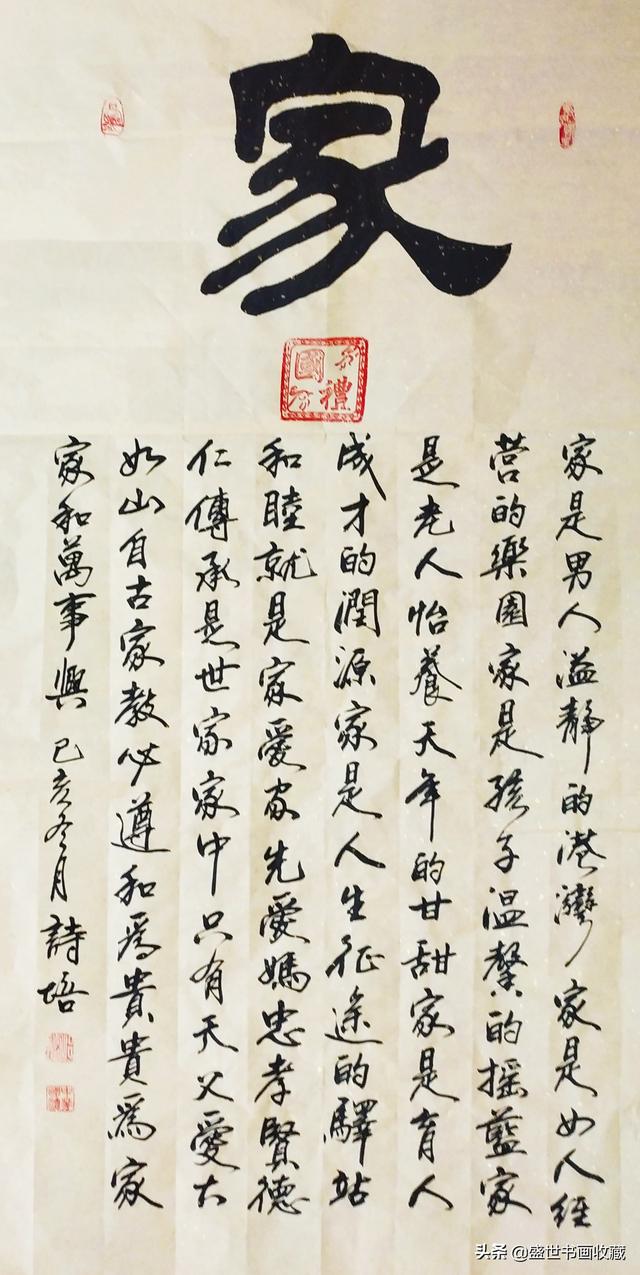 家
家是男人溢静的港灣家是女人经
营的樂園家是孩子温馨的摇藍家
是老人怡養天年的甘甜家是育人
成才的潤源家是人生征途的驛站
和睦就是家愛家先愛媽忠孝賢德
仁傳承是世家家中只有天父愛大
如山自古家教必遵和爲貴貴爲家
家和萬事興 己亥冬月 詩培
头条 @盛世书画收藏